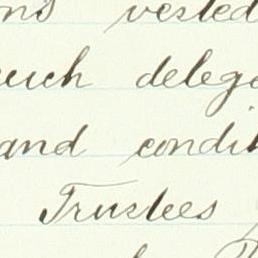 ons vested
such delega
and condit
Trustees